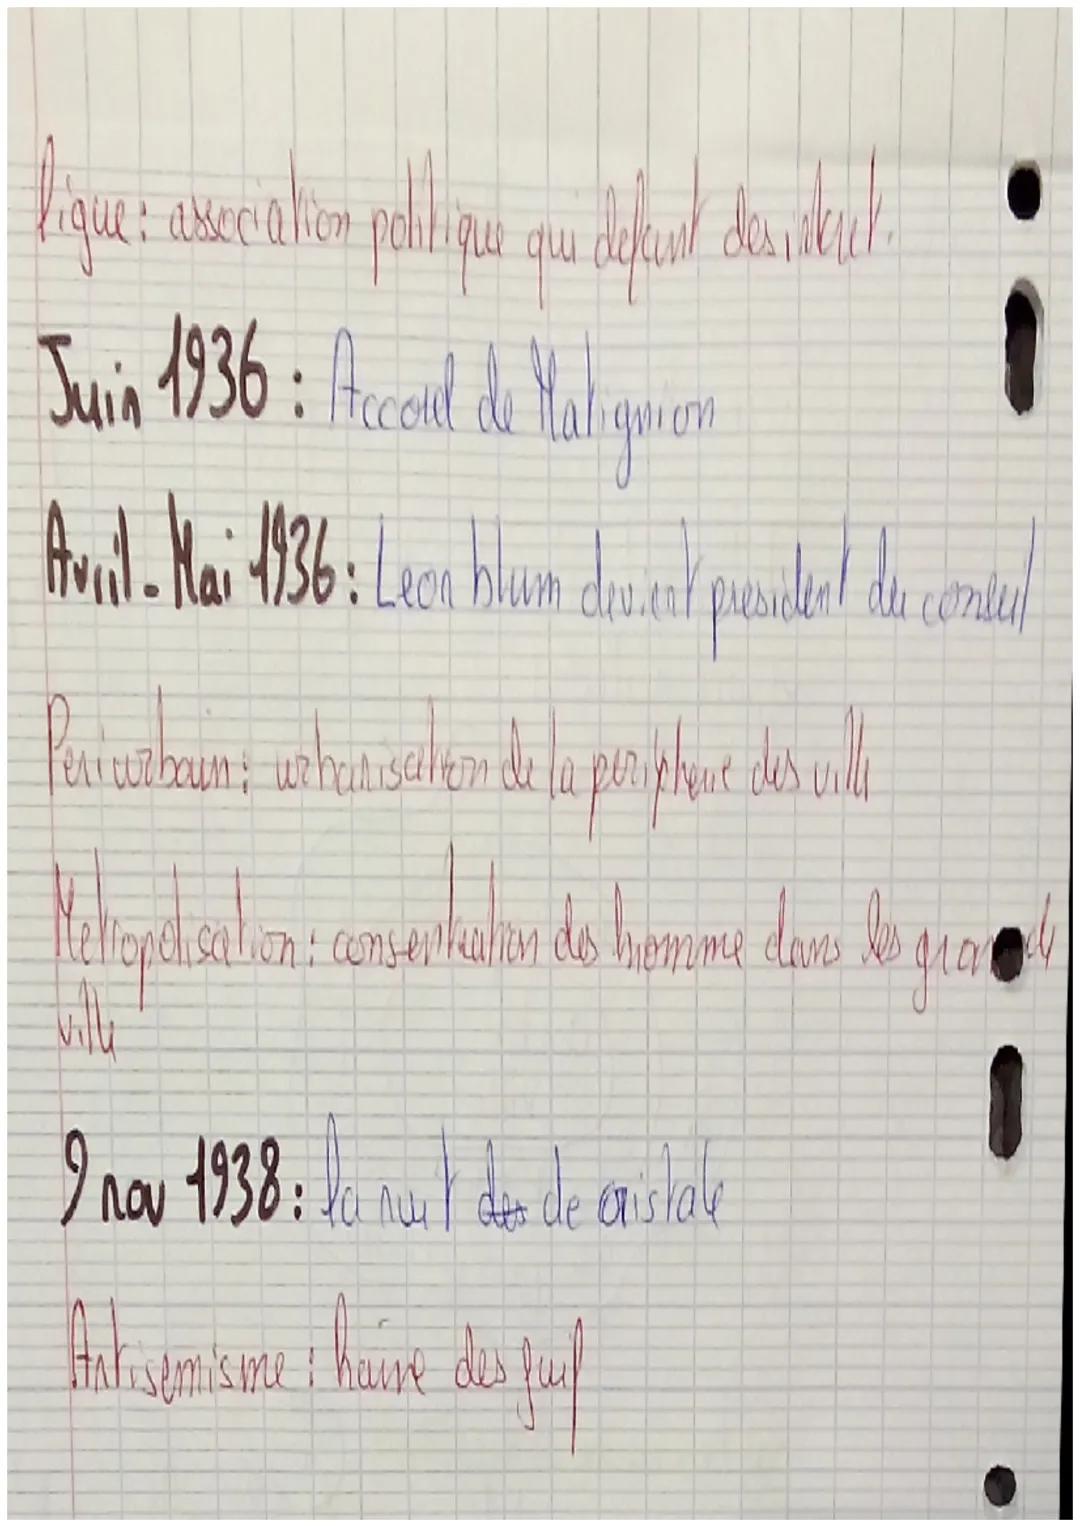 ligue : association politique qui defent des intéret.
Juin 1936 : Accord de Matignion
Avril - Mai 1936 : Leon blum devient president du conseil
Periurbain : urbanisation de la peripherie des ville
Metropolisation : consentration des homme dans les grande
ville
9 nov 1938 : la nuit des de cristale
Antisemisme : haine des juif